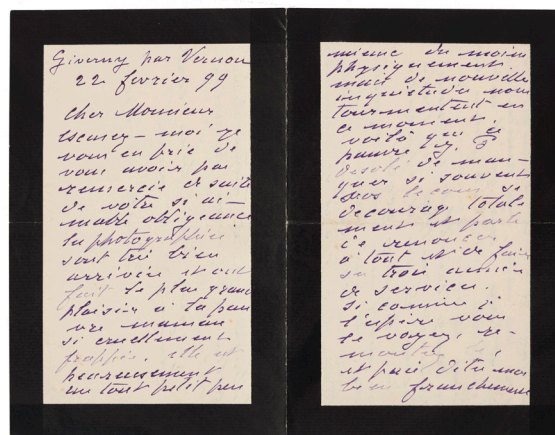 Giverny par Vernon
22 fevrier 99
cher Monsieur
excusez-moi je
vous en prie de
vous avoir pas
remercié de suite
de votre si ai-
mable obligeance
les photographies
sont très bien
arrivées et ont
fait le plus grand
plaisir à la pau
vre maman
si cruellement
frappée. elle est
heureusement
un tout petit peu
mieux du moins
physiquement
mais de nouvelles
inquiétudes nous
tourmentent en
ce moment.
voilà que ce
pauvre
désolé de man-
quer si souvent
se
décourage totale
ment et parle
de renoncer
à tout et de faire
trois années
de service.
si comme je
l'espère vous
le voyez re-
montez le
et puis dites moi
bien franchement